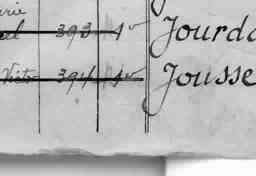 rie
el 393 4 Jourda
Vict 394 4 Jousse